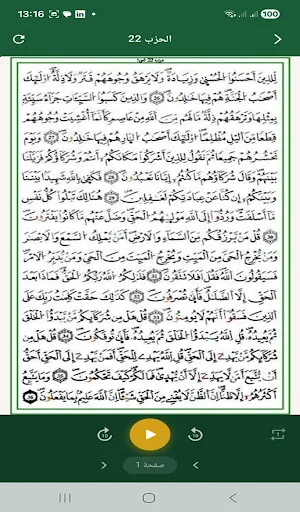 13:16
100
الحزب 22
للذين أحسنوا الحسنى وزيادة ولا يرهق وجوههم قتر ولا ذلة أولئك
أصحاب الجنة هم فيها خالدون 26 والذين كسبوا السيئات جزاء سيئة
بمثلها وترهقهم ذلة ما لهم من الله من عاصم كأنما أغشيت وجوههم
قطعا من الليل مظلما أولئك أصحاب النار هم فيها خالدون 27 ويوم
نحشرهم جميعا ثم نقول للذين أشركوا مكانكم أنتم وشركاؤكم فزيلنا
بينهم وقال شركاؤهم ما كنتم إيانا تعبدون 28 فكفى بالله شهيدا بيننا
وبينكم إن كنا عن عبادتكم لغافلين 29 هنالك تبلوا كل نفس
ما أسلفت وردوا إلى الله موليهم الحق وضل عنهم ما كانوا يفترون
30 قل من يرزقكم من السماء والأرض أمن يملك السمع والأبصار
ومن يخرج الحي من الميت ويخرج الميت من الحي ومن يدبر الأمر
فسيقولون الله فقل أفلا تتقون 31 فذلكم الله ربكم الحق فماذا بعد
الحق إلا الضلال فأنى تصرفون 32 كذلك حقت كلمات ربك على
الذين فسقوا أنهم لا يؤمنون 33 قل هل من شركائكم من يبدؤا
الخلق ثم يعيده قل الله يبدؤا الخلق ثم يعيده فأنى توفكون 34 قل هل من
شركائكم من يهدي إلى الحق قل الله يهدي للحق أفمن يهدي إلى الحق أحق
أن يتبع أمن لا يهدي إلا أن يهدى فما لكم كيف تحكمون 35 وما يتبع
أكثرهم إلا ظنا إن الظن لا يغني من الحق شيئا إن الله عليم بما يفعلون 36
10
10
1
صفحة 1